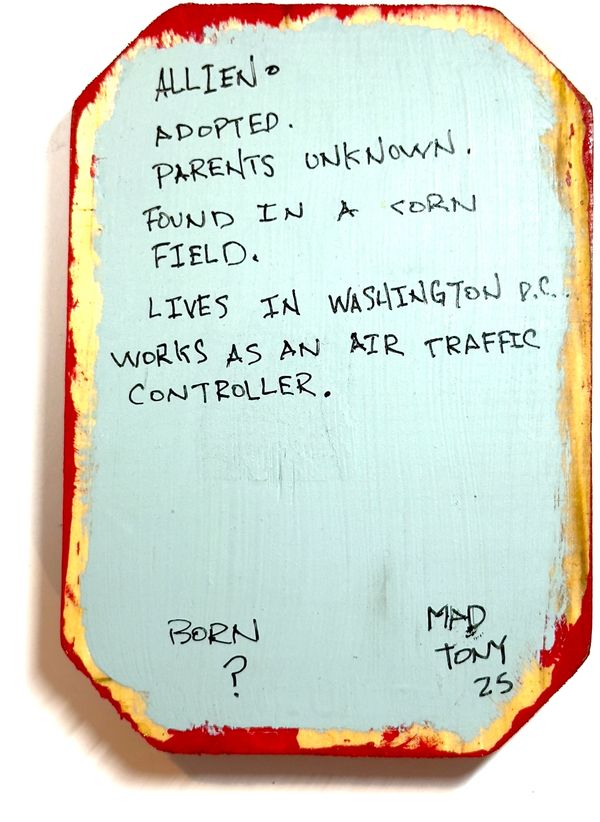 ALLIEN.
ADOPTED.
PARENTS UNKNOWN.
FOUND IN A CORN
FIELD.
LIVES IN WASHINGTON D.C..
WORKS AS AN AIR TRAFFIC
CONTROLLER.
BORN
?
MAD
TONY
25